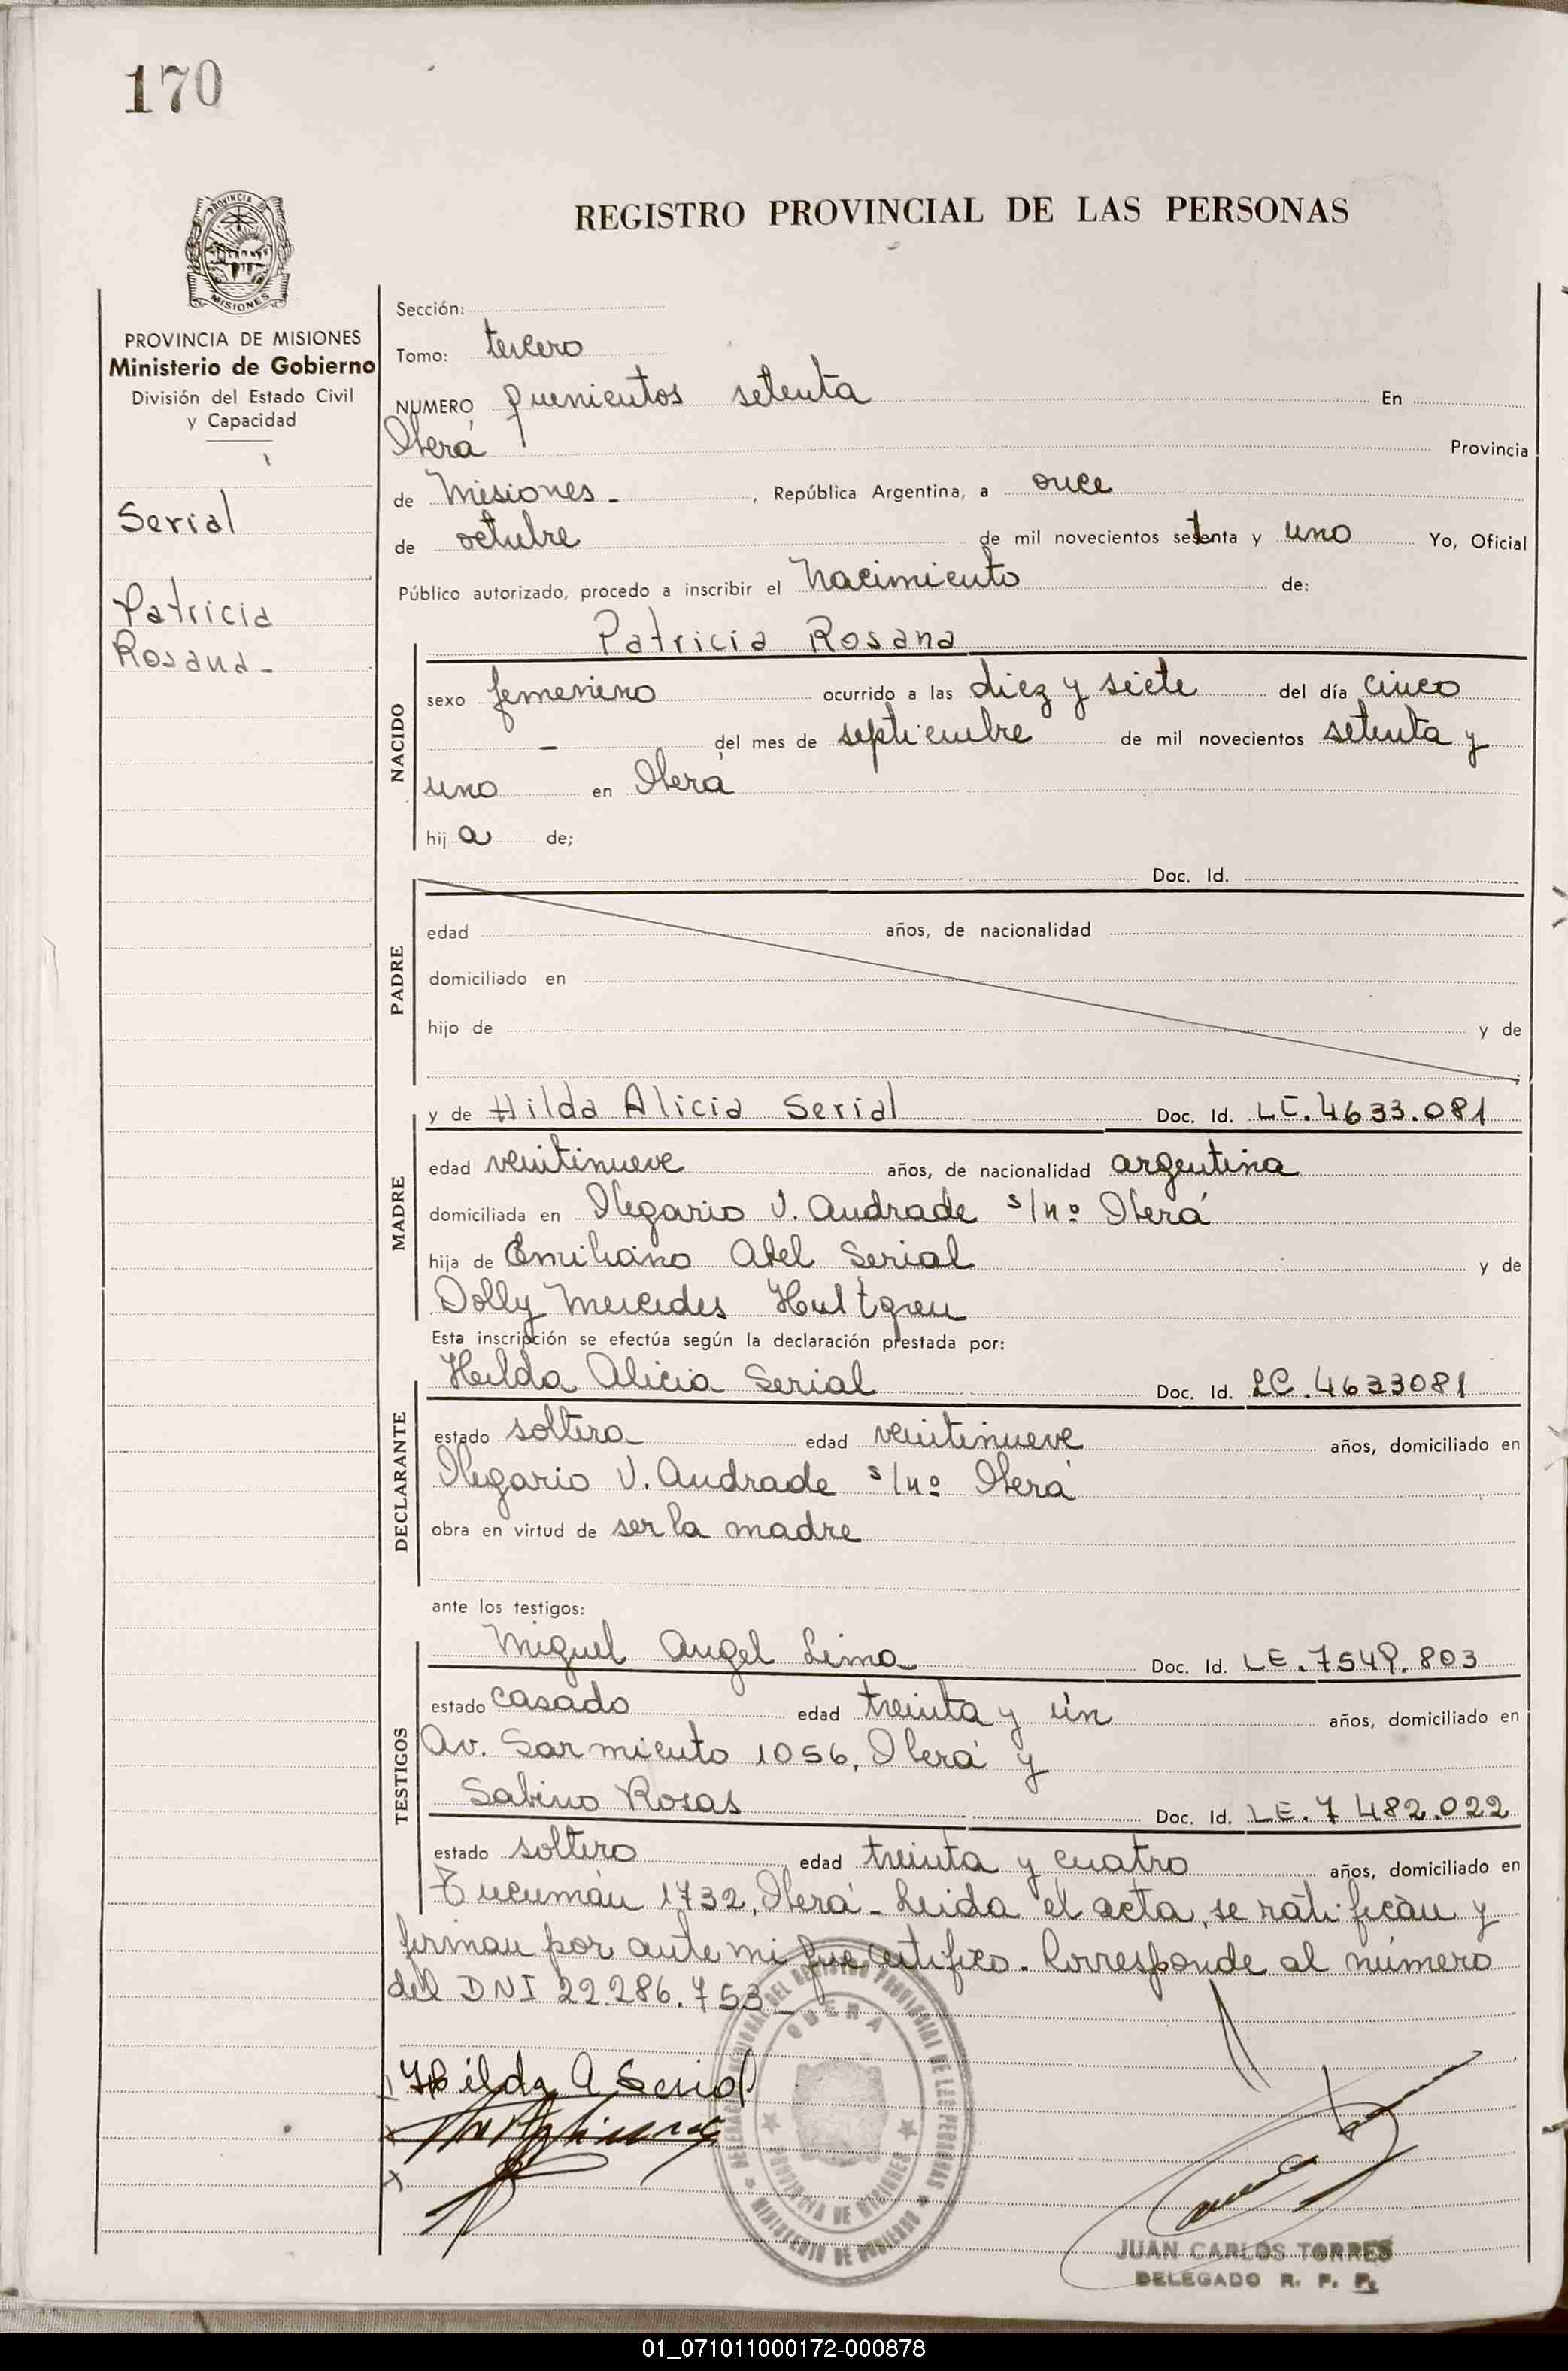 170
REGISTRO PROVINCIAL DE LAS PERSONAS
PROVINCIA DE MISIONES
MISIONES
PROVINCIA DE MISIONES
Ministerio de Gobierno
División del Estado Civil
y Capacidad
Serial
Patricia
Rosana-
Sección:
Tomo: tercero
NUMERO quinientos setenta En
Oberá Provincia
de Misiones - , República Argentina, a once
de octubre de mil novecientos setenta y uno Yo, Oficial
Público autorizado, procedo a inscribir el Nacimiento de:
NACIDO
Patricia Rosana
sexo femenino ocurrido a las diez y siete del día cinco
- del mes de septiembre de mil novecientos setenta y
uno en Oberá
hij a de;
PADRE
Doc. Id.
edad años, de nacionalidad
domiciliado en
hijo de y de
MADRE
y de Hilda Alicia Serial Doc. Id. LC. 4633.081
edad veintinueve años, de nacionalidad argentina
domiciliada en Olegario V. Andrade s/nº Oberá
hija de Emiliano Abel Serial y de
Dolly Mercedes Hultgren
Esta inscripción se efectúa según la declaración prestada por:
DECLARANTE
Hilda Alicia Serial Doc. Id. LC. 4633081
estado soltera edad veintinueve años, domiciliado en
Olegario V. Andrade s/nº Oberá
obra en virtud de ser la madre
ante los testigos:
TESTIGOS
Miguel Angel Lima Doc. Id. LE. 7549.803
estado casado edad treinta y ún años, domiciliado en
Av. Sarmiento 1056, Oberá y
Sabino Rosas Doc. Id. LE. 7 482.022
estado soltero edad treinta y cuatro años, domiciliado en
Tucumán 1732, Oberá - Leida el acta, se ratifican y
firman por ante mi que certifico. Corresponde al número
del DNI 22.286.753 -
Hilda A Serial
DELEGACION REGIONAL DEL REGISTRO PROVINCIAL DE LAS PERSONAS
OBERA
PROVINCIA DE MISIONES
MINISTERIO DE GOBIERNO
JUAN CARLOS TORRES
DELEGADO R. P. P.
01_071011000172-000878